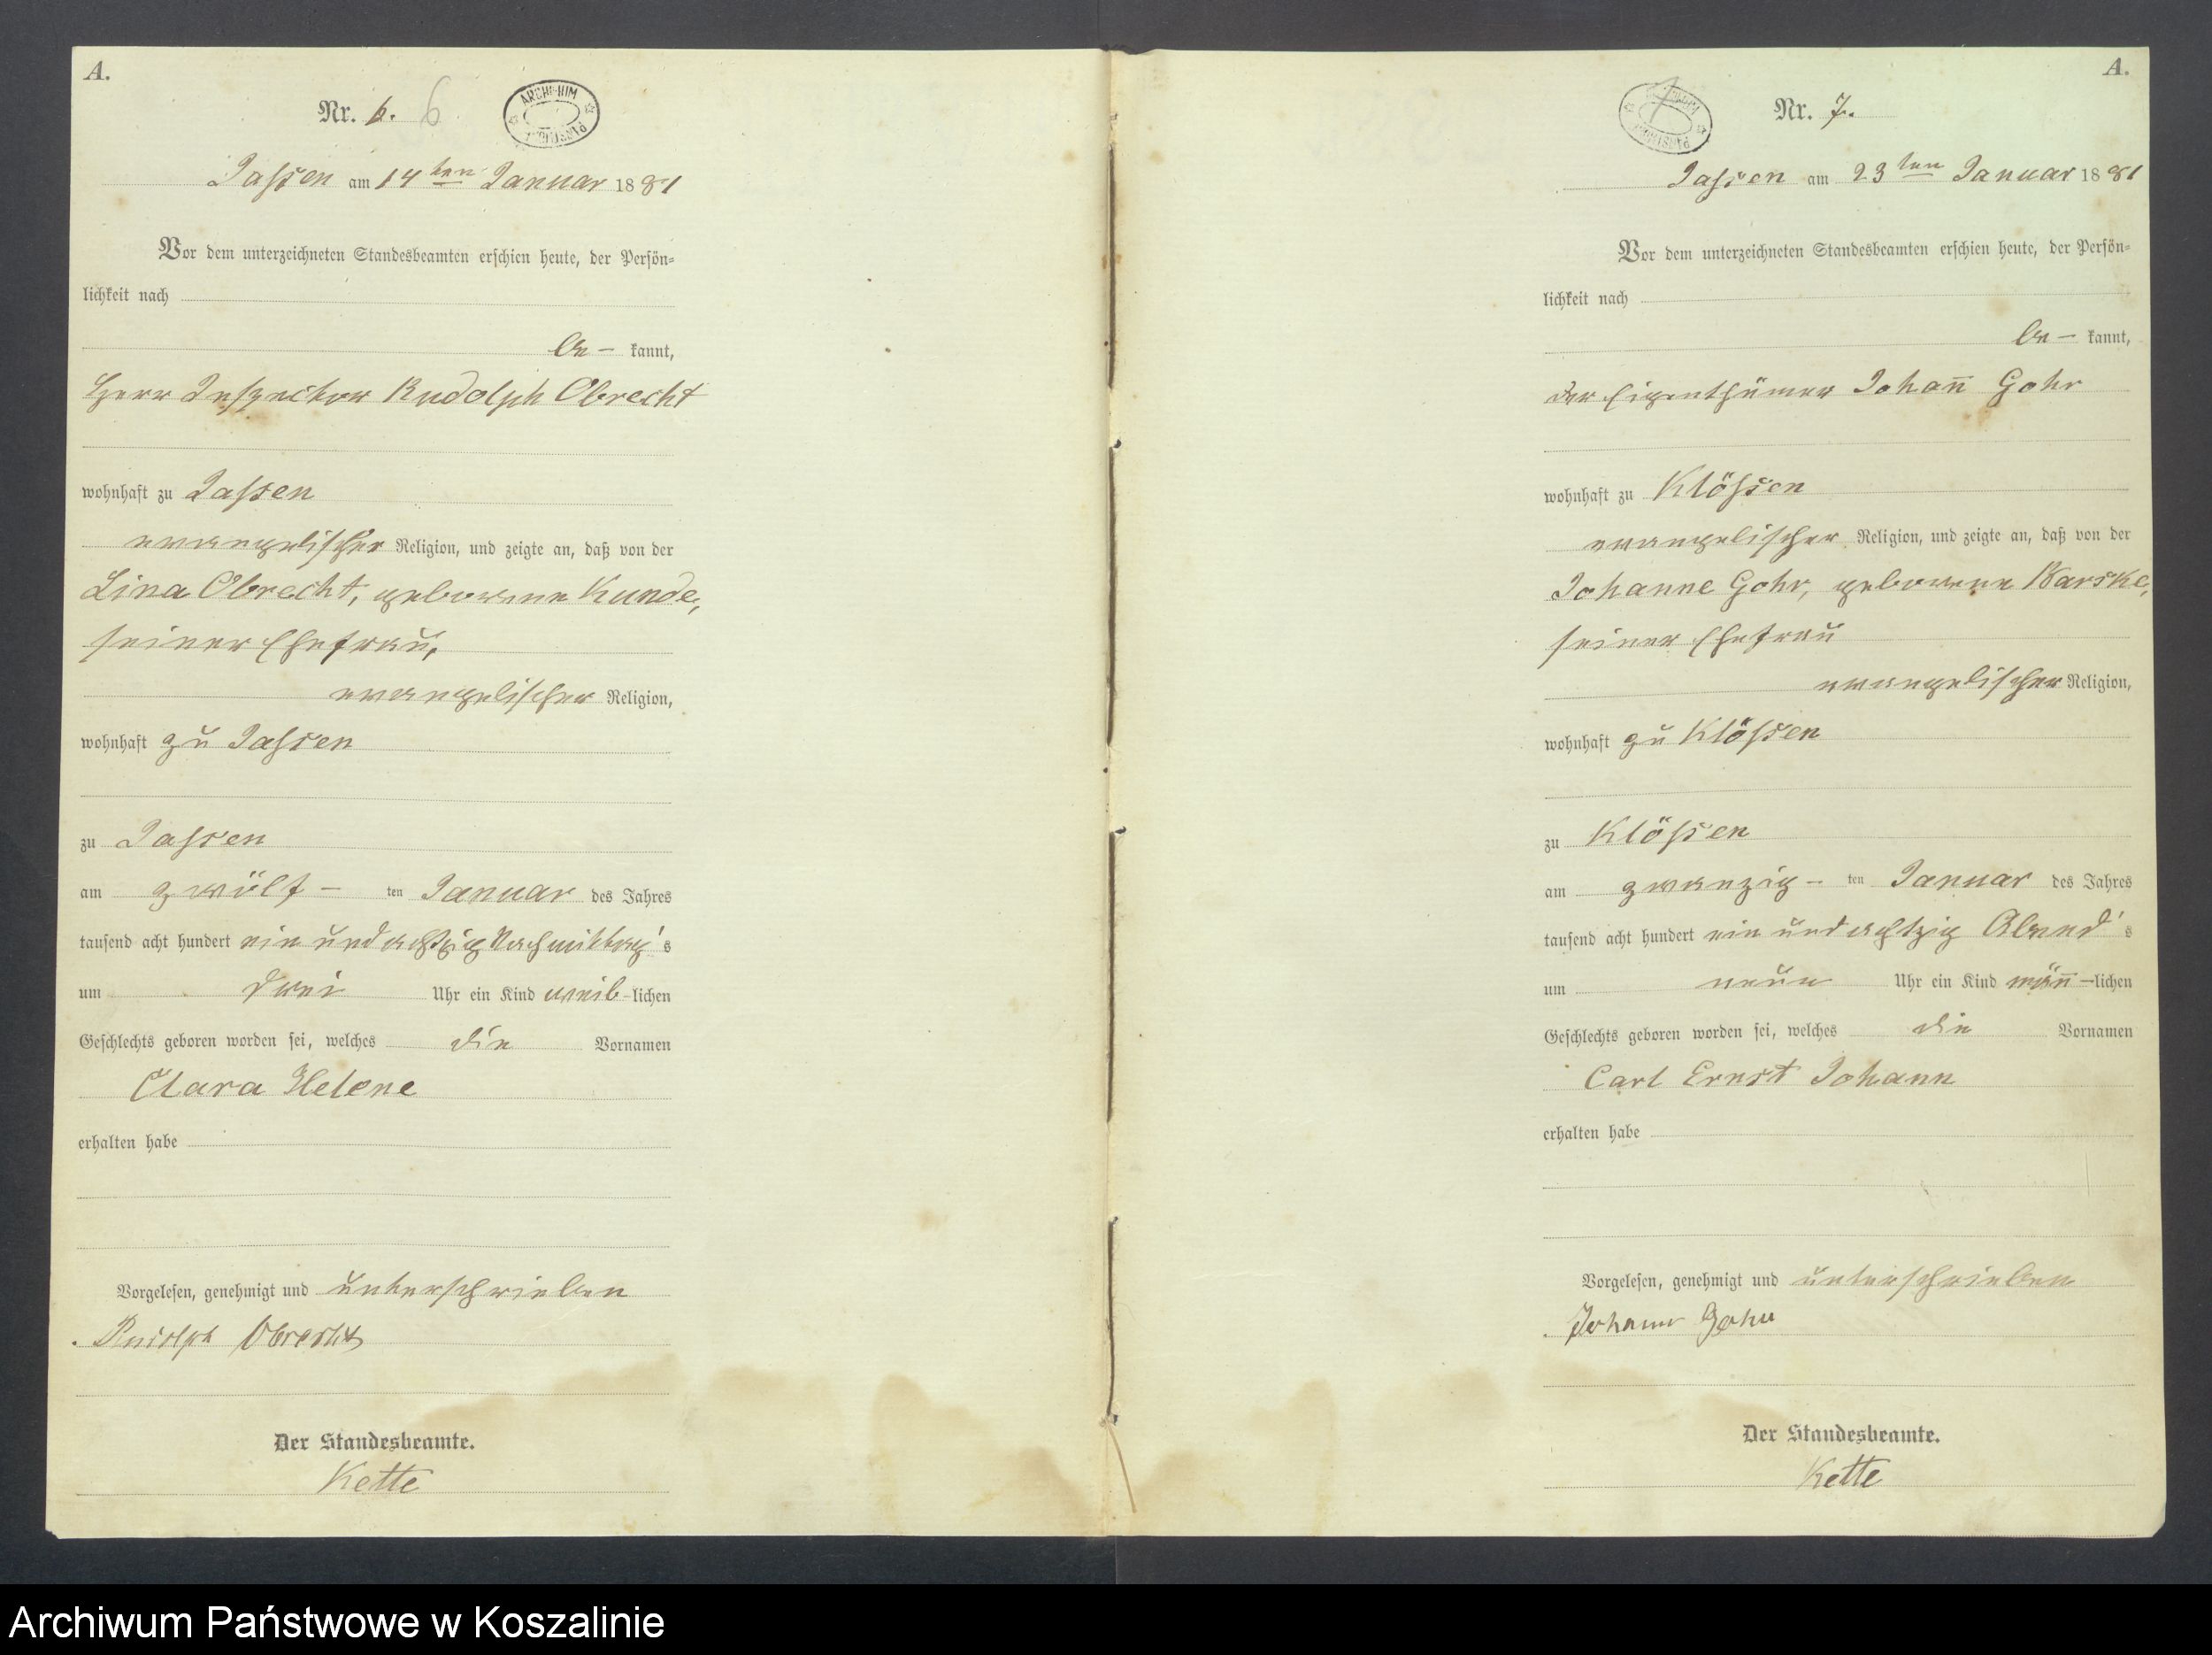 A.
Nr. 6. 6
ARCHIWUM
PAŃSTWOWE
Jassen am 14ten Januar 1881
Vor dem unterzeichneten Standesbeamten erschien heute, der Persön=
lichkeit nach
be– kannt,
Herr Inspector Rudolph Obrecht
wohnhaft zu Jassen
evangelischer Religion, und zeigte an, daß von der
Lina Obrecht, geborene Kunde,
seiner Ehefrau,
evangelischer Religion,
wohnhaft zu Jassen
zu Jassen
am zwölf – ten Januar des Jahres
tausend acht hundert ein und achtzig Nachmittag's
um drei Uhr ein Kind weib-lichen
Geschlechts geboren worden sei, welches die Vornamen
Clara Helene
erhalten habe
Vorgelesen, genehmigt und unterschrieben
Rudolph Obrecht
Der Standesbeamte.
Kette
A.
7
Nr. 7.
Jassen am 23ten Januar 1881
Vor dem unterzeichneten Standesbeamten erschien heute, der Persön=
lichkeit nach
be– kannt,
der Eigenthümer Johan̄ Gohr
wohnhaft zu Klössen
evangelischer Religion, und zeigte an, daß von der
Johanne Gohr, geborene Barske,
seiner Ehefrau
evangelischer Religion,
wohnhaft zu Klössen
zu Klössen
am zwanzig – ten Januar des Jahres
tausend acht hundert ein und achtzig Abend's
um neun Uhr ein Kind män̄–lichen
Geschlechts geboren worden sei, welches die Vornamen
Carl Ernst Johann
erhalten habe
Vorgelesen, genehmigt und unterschrieben
Johann Gohr
Der Standesbeamte.
Kette
Archiwum Państwowe w Koszalinie